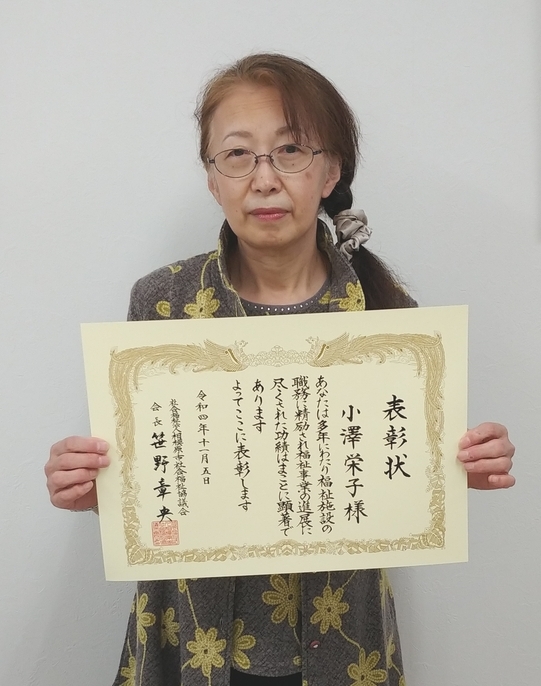 表彰状
小澤栄子様
あなたは多年にわたり福祉施設の
職務に精励され福祉事業の進展に
尽くされた功績はまことに顕著で
あります
よってここに表彰します
令和四年十一月五日
社会福祉法人相模原市社会福祉協議会
会長 笹野章央